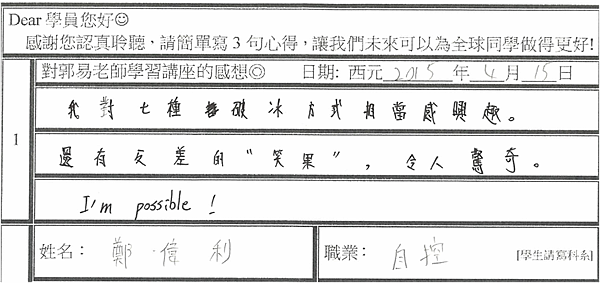 Dear 學員您好☺
感謝您認真聆聽、請簡單寫 3 句心得，讓我們未來可以為全球同學做得更好!
對郭易老師學習講座的感想◎ 日期: 西元 2015 年 4 月 15 日
1
我對七種破冰方式相當感興趣。
還有反差的"笑果"，令人驚奇。
I'm possible !
姓名： 鄭偉利 職業： 自控 [學生請寫科系]